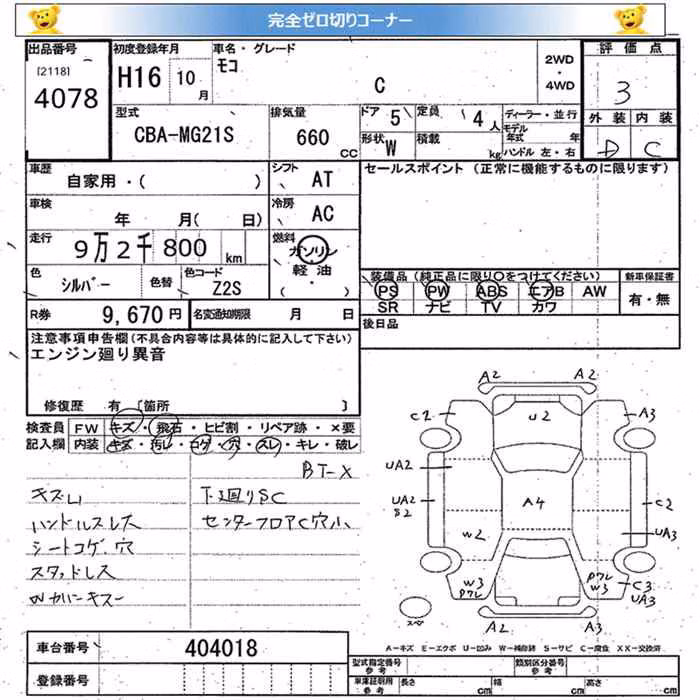 完全ゼロ切りコーナー
出品番号 初度登録年月 車名・グレード 評価点
[2118] モコ 2WD
4078 H16 10月 C ・ 3
4WD
型式 排気量 ドア 5 定員 4人 ディーラー・並行 外装 内装
CBA-MG21S 660cc 形状 W 積載 kg モデル年式 年 D C
ハンドル 左・右
車歴 自家用・( ) シフト AT セールスポイント (正常に機能するものに限ります)
車検 年 月( 日) 冷房 AC
走行 9万2千800km 燃料 ガソリン
軽油
・( )
色 シルバー 色替 色コード Z2S
装備品(純正品に限り○をつけてください) 新車保証書
PS PW ABS エアB AW 有・無
SR ナビ TV カワ
R券 9,670円 名変通知期限 月 日 後日品
注意事項申告欄(不具合内容等は具体的に記入して下さい)
エンジン廻り異音
修復歴 有 [箇所 ]
検査員 FW キズ・飛石・ヒビ割・リペア跡・×要
記入欄 内装 キズ・汚レ・コゲ・穴・スレ・キレ・破レ
BT-X
キズ凹 下廻りSC
ハンドルスレ大 センターフロアC穴小
シートコゲ、穴
スタッドレス
A2 A2
C2 U2 A3
UA2
UA2 A4 C2
S2
W2 UA3
W3 Pワレ Pワレ W3 C3
UA3
スペア
A2 A3
A-キズ E-エクボ U-凹み W-補修跡 S-サビ C-腐食 XX-交換済
車台番号 404018 型式指定番号 参考 類別区分番号 参考
登録番号 車庫証明用 参考 長さ cm 幅 cm 高さ cm